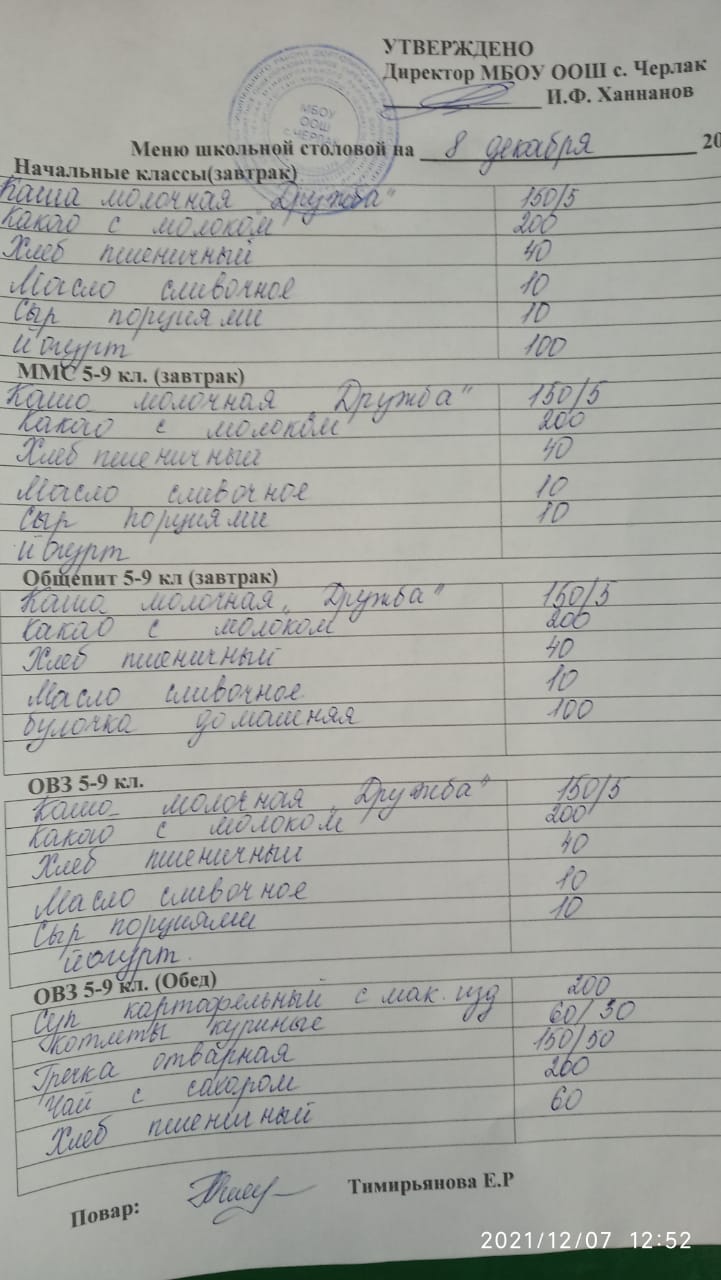 УТВЕРЖДЕНО
Директор МБОУ ООШ с. Черлак
И.Ф. Ханнанов
МБОУ
ООШ
с. ЧЕРЛАК
Меню школьной столовой на 8 декабря 20
Начальные классы(завтрак)
Каша молочная "Дружба" 150/5
Какао с молоком 200
Хлеб пшеничный 40
Масло сливочное 10
Сыр порциями 10
Йогурт 100
ММС 5-9 кл. (завтрак)
Каша молочная "Дружба" 150/5
Какао с молоком 200
Хлеб пшеничный 40
Масло сливочное 10
Сыр порциями 10
йогурт
Общепит 5-9 кл (завтрак)
Каша молочная "Дружба" 150/5
Какао с молоком 200
Хлеб пшеничный 40
Масло сливочное 10
булочка домашняя 100
ОВЗ 5-9 кл.
Каша молочная "Дружба" 150/5
Какао с молоком 200
Хлеб пшеничный 40
Масло сливочное 10
Сыр порциями 10
йогурт.
ОВЗ 5-9 кл. (Обед)
Суп картафельный с мак. изд 200
Котлеты куриные 60/30
Гречка отварная 150/50
Чай с сахаром 200
Хлеб пшеничный 60
Повар: Тимирьянова Е.Р
2021/12/07 12:52